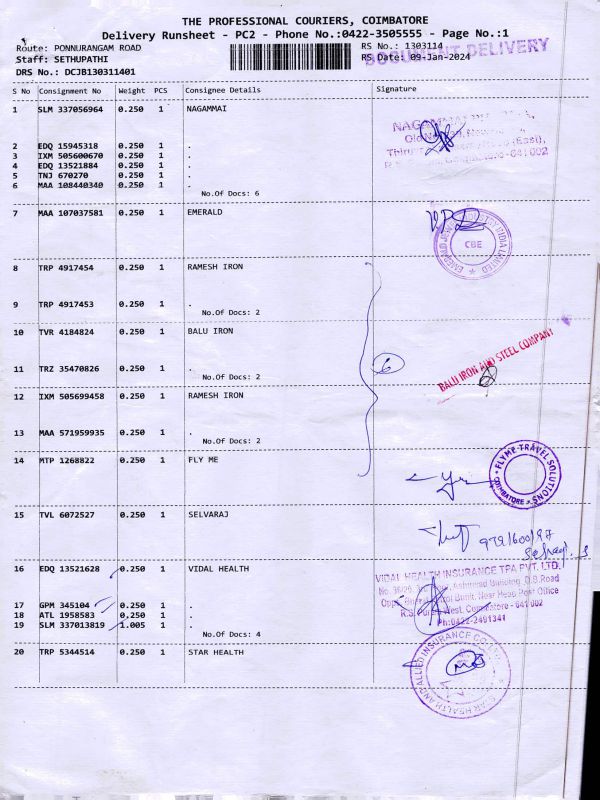 THE PROFESSIONAL COURIERS, COIMBATORE
Delivery Runsheet - PC2 - Phone No.:0422-3505555 - Page No.:1
Route: PONNURANGAM ROAD
RS No.: 1303114
DOCUMENT DELIVERY
Staff: SETHUPATHI
RS Date: 09-Jan-2024
DRS No.: DCJB130311401
S No Consignment No Weight PCS Consignee Details Signature
1 SLM 337056964 0.250 1 NAGAMMAI
NAGAMMAI
2 EDQ 15945318 0.250 1 .
3 IXM 505600670 0.250 1 .
4 EDQ 13521884 0.250 1 .
5 TNJ 670270 0.250 1 .
6 MAA 108440340 0.250 1 .
No.Of Docs: 6
7 MAA 107037581 0.250 1 EMERALD
EMERALD JEWEL INDUSTRY INDIA LIMITED
CBE
8 TRP 4917454 0.250 1 RAMESH IRON
9 TRP 4917453 0.250 1 .
No.Of Docs: 2
10 TVR 4184824 0.250 1 BALU IRON
BALU IRON AND STEEL COMPANY
6
11 TRZ 35470826 0.250 1 .
No.Of Docs: 2
12 IXM 505699458 0.250 1 RAMESH IRON
13 MAA 571959935 0.250 1 .
No.Of Docs: 2
14 MTP 1268822 0.250 1 FLY ME
FLYME TRAVEL SOLUTIONS
COIMBATORE
15 TVL 6072527 0.250 1 SELVARAJ
16 EDQ 13521628 0.250 1 VIDAL HEALTH
VIDAL HEALTH INSURANCE TPA PVT. LTD.
Building, D.B.Road
Near Head Post Office
West, Coimbatore - 641 002
Ph:0422-2491341
17 GPM 345104 0.250 1 .
18 ATL 1958583 0.250 1 .
19 SLM 337013819 1.005 1 .
No.Of Docs: 4
20 TRP 5344514 0.250 1 STAR HEALTH
STAR HEALTH AND ALLIED INSURANCE CO. LTD.